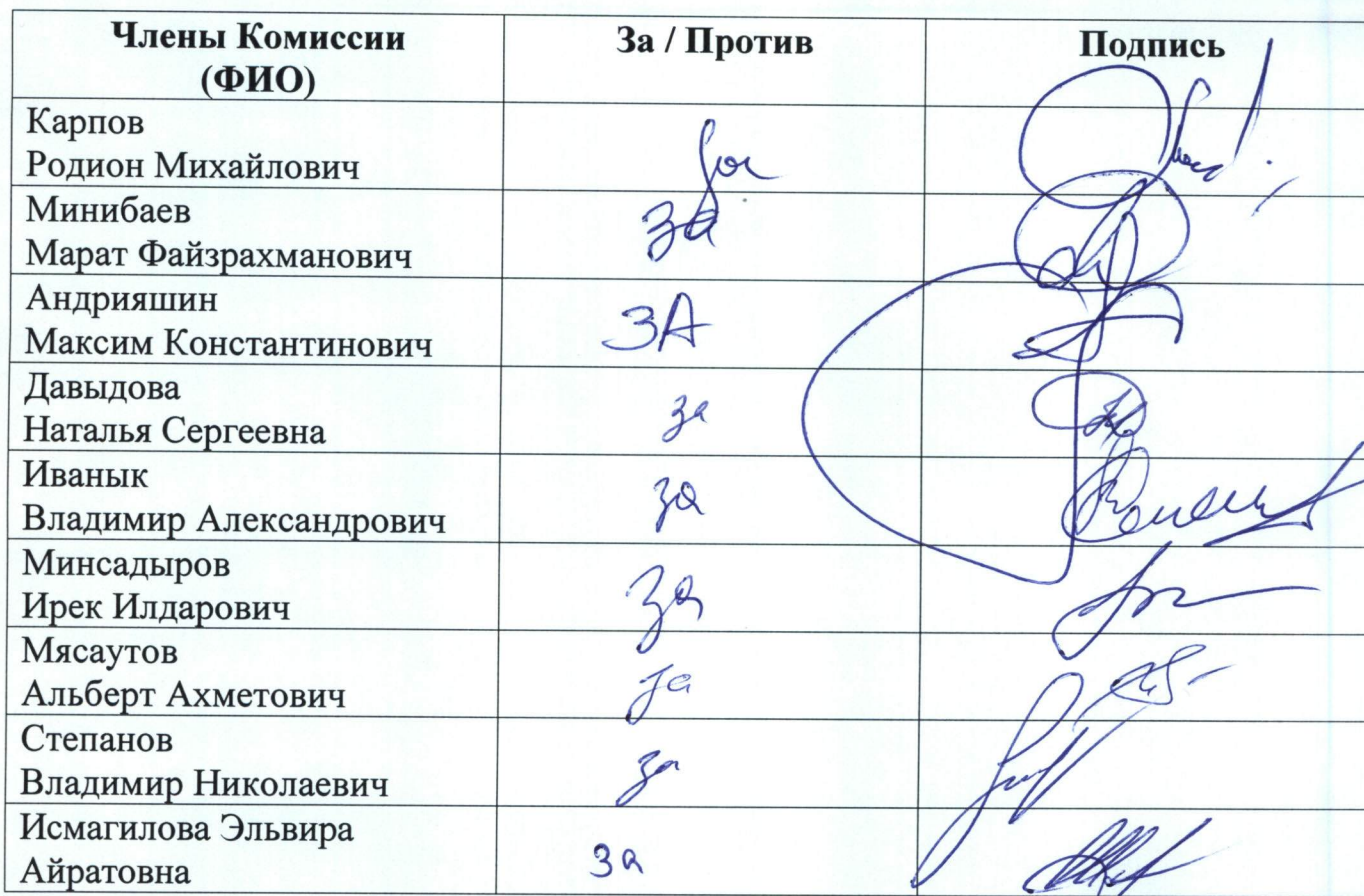 Члены Комиссии За / Против Подпись
(ФИО)
Карпов
Родион Михайлович за
Минибаев
Марат Файзрахманович за
Андрияшин
Максим Константинович ЗА
Давыдова
Наталья Сергеевна за
Иванык
Владимир Александрович за
Минсадыров
Ирек Илдарович за
Мясаутов
Альберт Ахметович за
Степанов
Владимир Николаевич за
Исмагилова Эльвира
Айратовна за